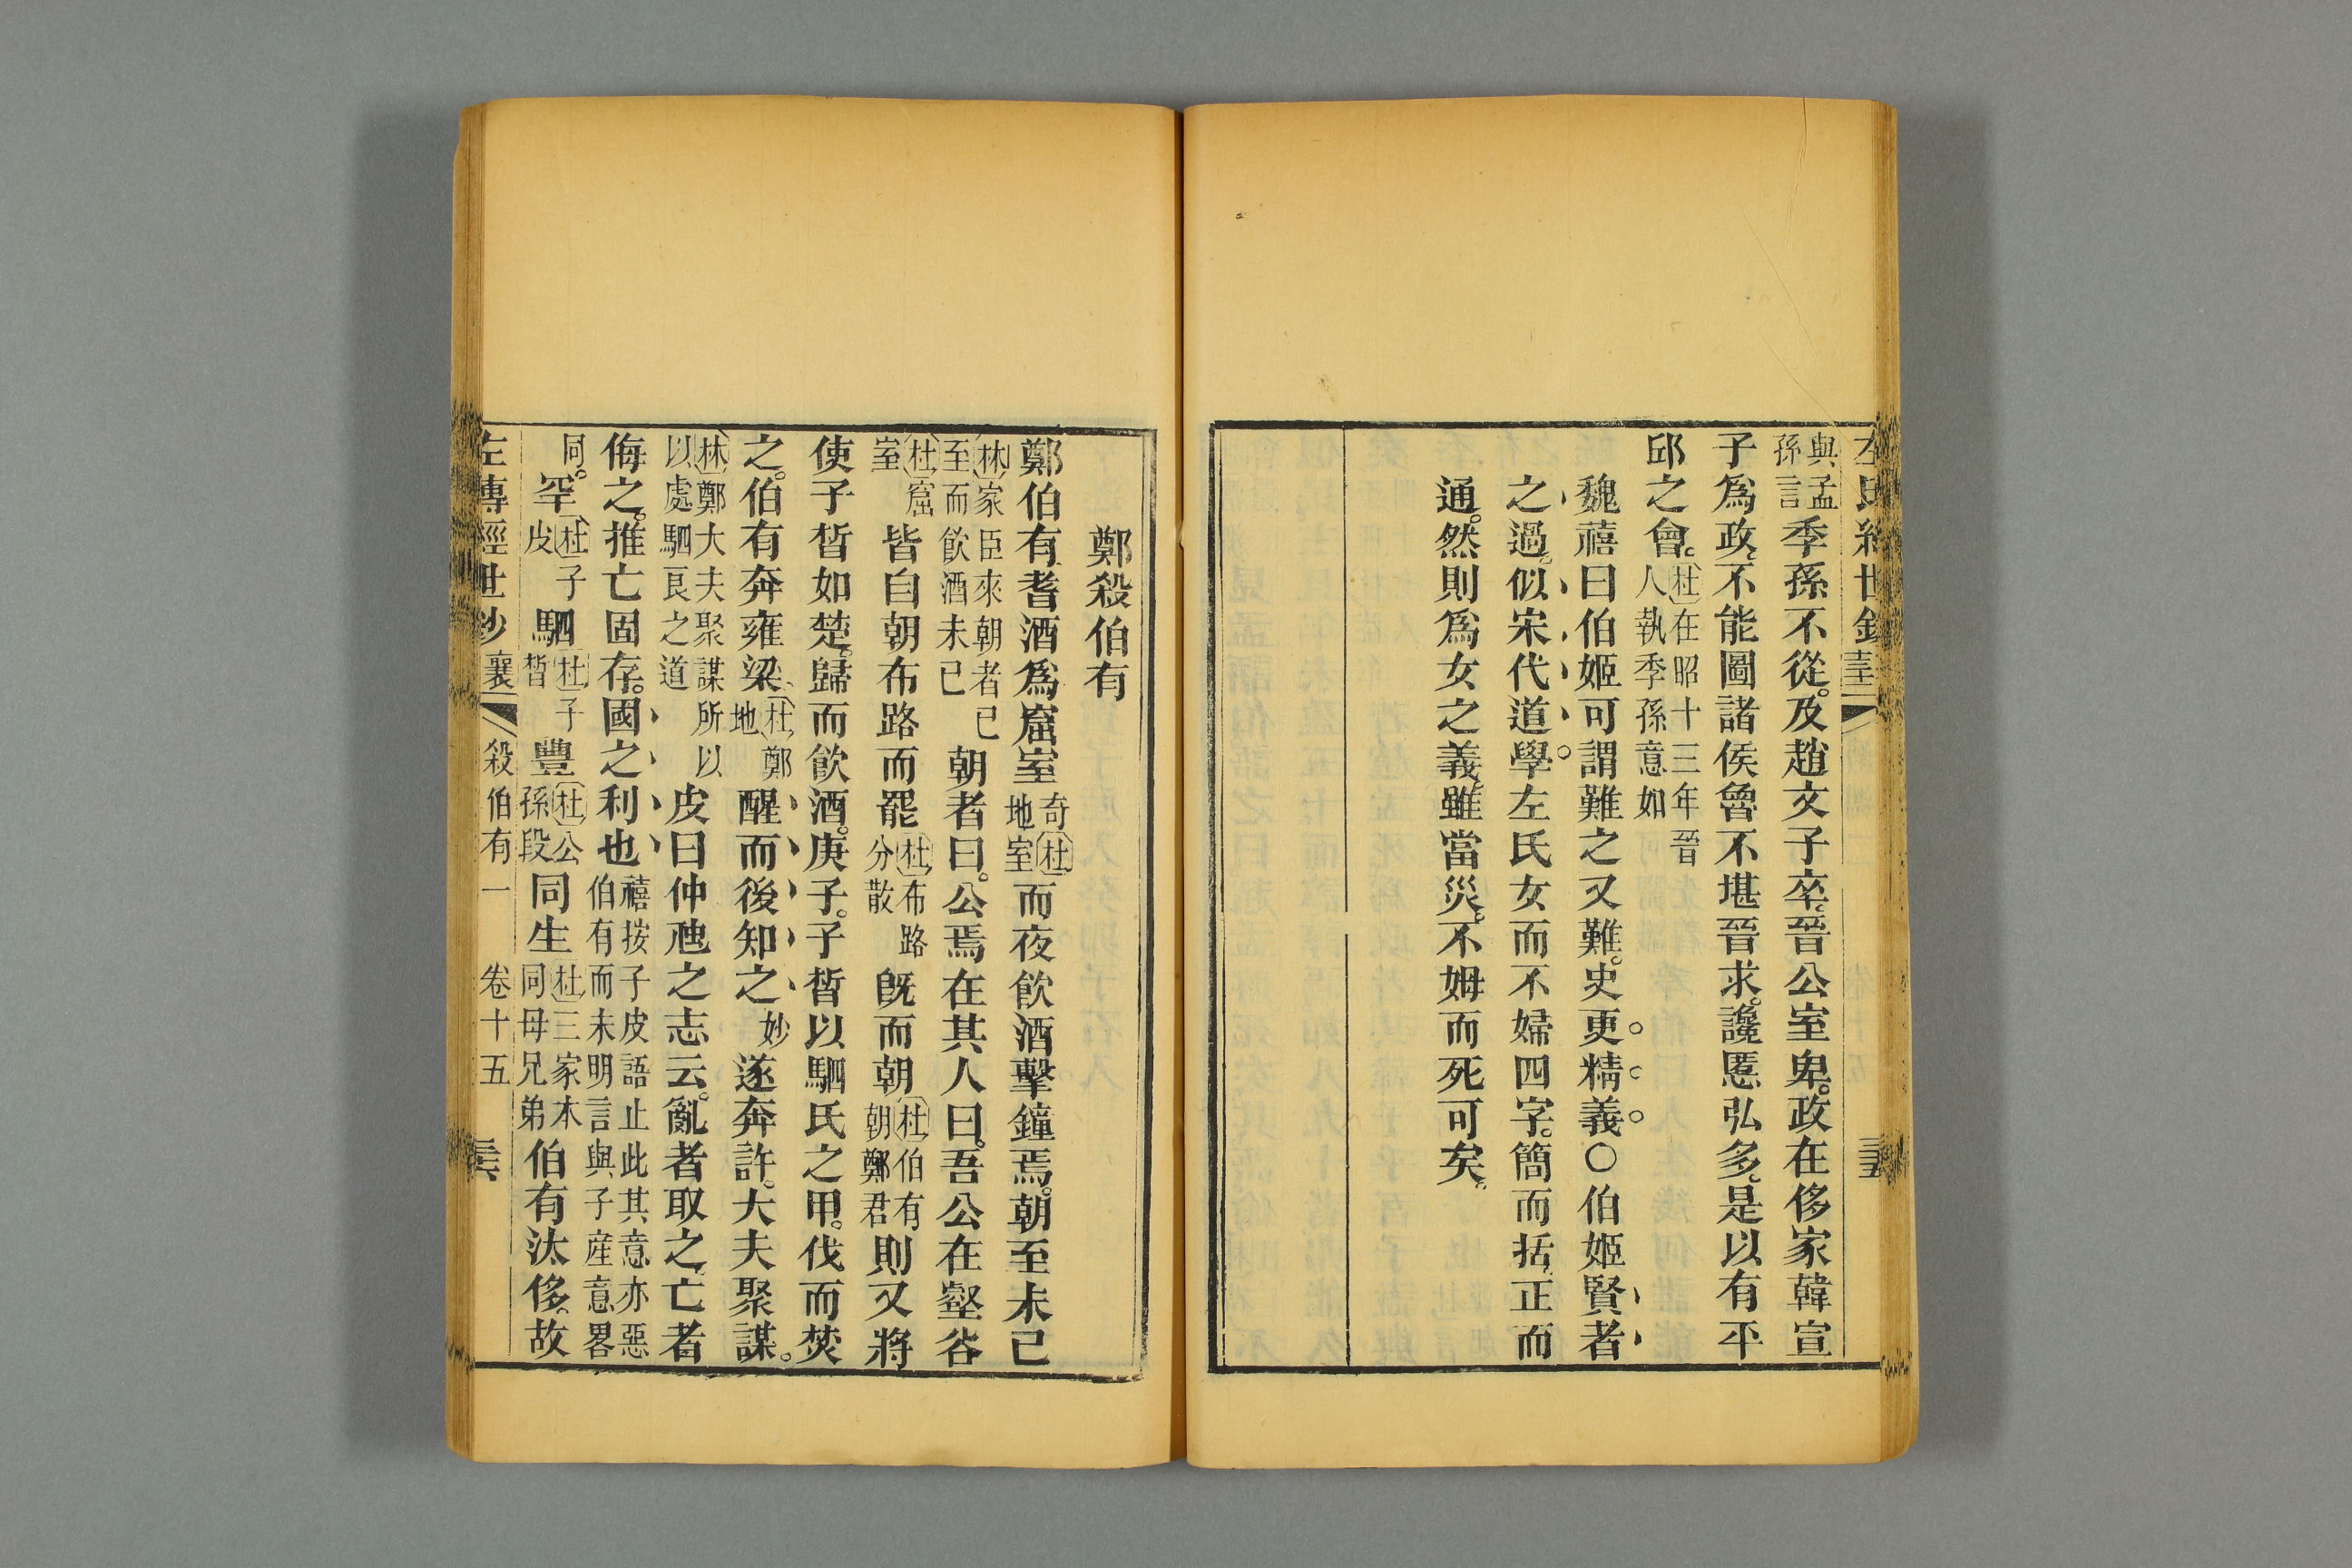 與孟
孫言
季孫不從。及趙文子卒。晉公室卑。政在侈家韓宣
子爲政。不能圖諸侯魯不堪晉求。讒慝弘多。是以有平
邱之會。
杜在昭十三年晉
人執季孫意如
魏禧曰伯姬可謂難之又難。史更精義〇伯姬賢者
之過。似宋代道學。左氏女而不婦四字。簡而括。正而
通。然則爲女之義。雖當災。不姆而死可矣。
鄭殺伯有
鄭伯有耆酒爲窟室
奇杜
地室
而夜飲酒擊鐘焉。朝至未已
林家臣來朝者已
至而飲酒未已
朝者曰。公焉在其人曰。吾公在壑谷
杜窟
室
皆自朝布路而罷
杜布路
分散
既而朝
杜伯有
朝鄭君
則又將
使子晳如楚。歸而飲酒。庚子。子晳以駟氏之甲。伐而焚
之。伯有奔雍梁
杜鄭
地
醒而後知之
妙
遂奔許。大夫聚謀。
林鄭大夫聚謀所以
以處駟良之道
皮曰仲虺之志云。亂者取之。亡者
侮之。推亡固存。國之利也
禧按子皮語止此其意亦惡
伯有而未明言與子産意畧
同。
罕
杜子
皮
駟
杜子
晳
豐
杜公
孫段
同生
杜三家本
同母兄弟
伯有汰侈。故
左傳經世鈔 襄 殺伯有一 卷十五